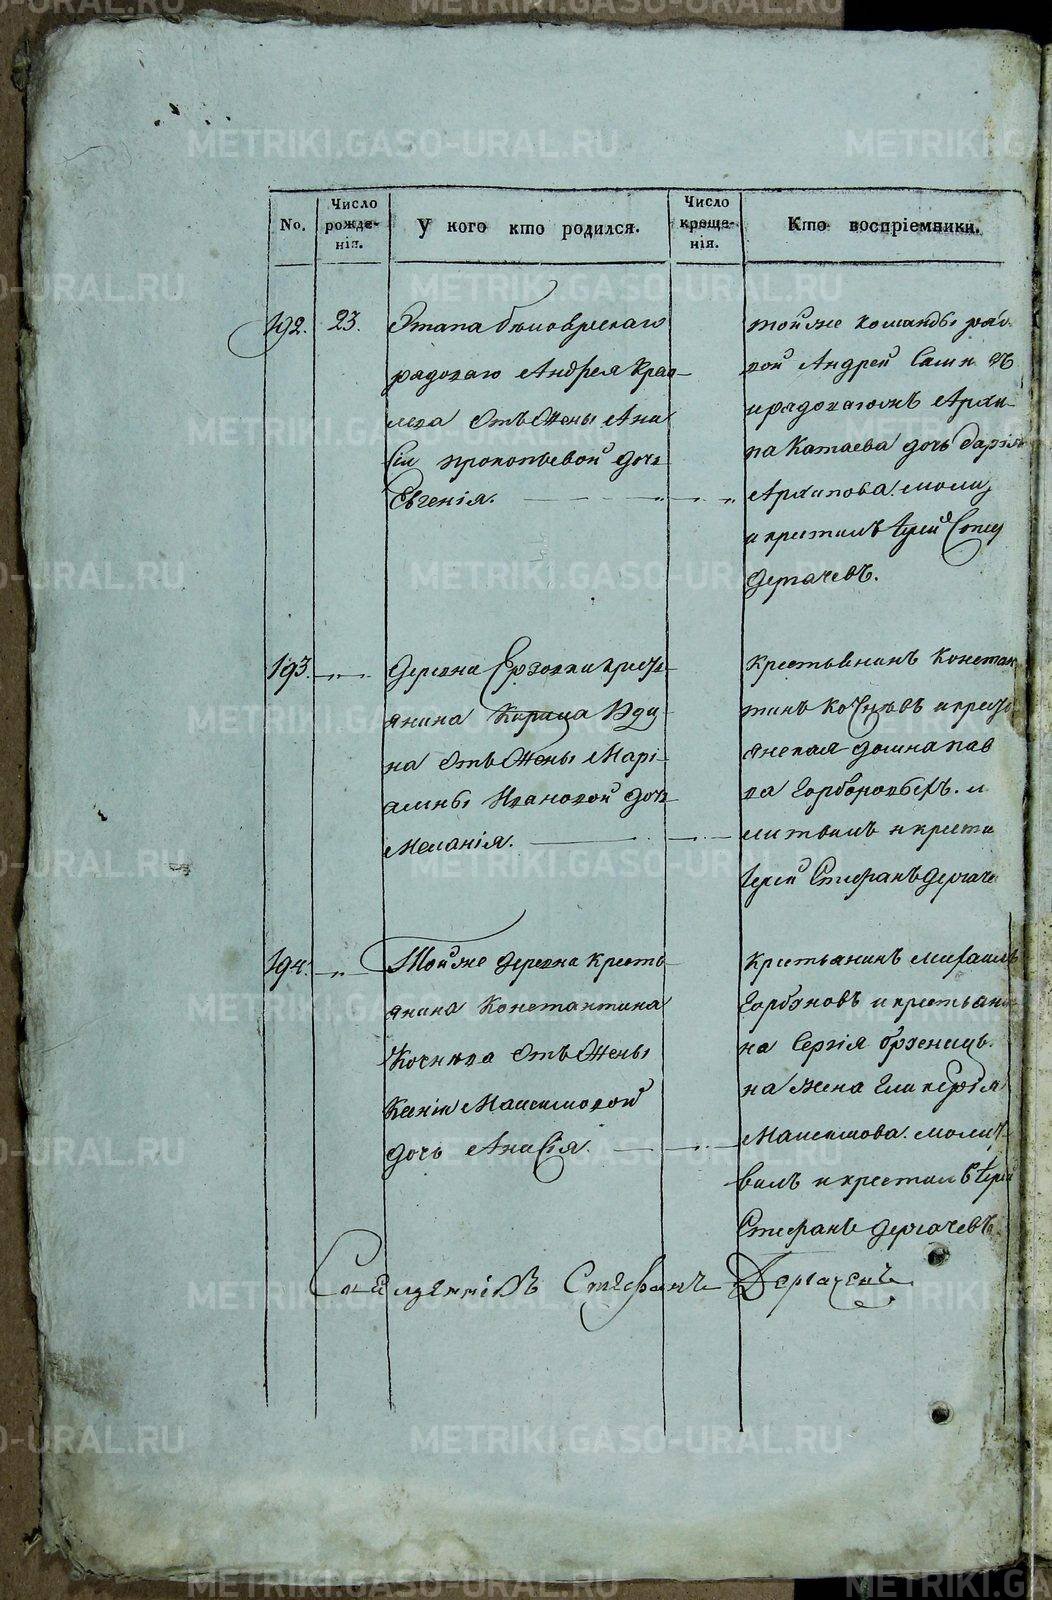 METRIKI.GASO-URAL.RU
No.
Число рожденія.
У кого кто родился.
Число крещенія.
Кто воспріемники.
192. 23.
Этапа
рядоваго Андрея Крас
отъ Жены Ана
сіи прокопьевой дочь
Евгенія.
тойже команды рядо
вой Андрей
и рядоваго Архи
па Катаева дочь дарія
Архипова. моли
и крестилъ Іерей Стеф
Дергачевъ.
193.
деревни крест
янина Кирила
на отъ Жены Марі
амны Ивановой дочь
Меланія.
Крестьянинъ Констан
тинъ Кочневъ и крест
янская дочь
Горбуновыхъ. м
литвилъ и крести
Іерей Стефанъ Дергаче
194.
Тойже деревни Кресть
янина Константина
Кочнева отъ Жены
Ксеніи Максимовой
дочь Анисія.
Крестьянинъ Михаилъ
Горбуновъ и крестьяни
на Сергія
на жена Гликерія
Максимова. молит
вилъ и крестилъ Іерей
Стефанъ Дергачевъ.
Священникъ Стефанъ Дергачевъ